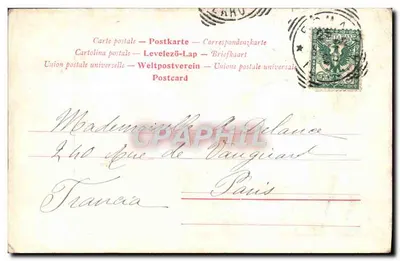 Carte postale — Postkarte — Correspondenzkarte
Cartolina postale — Levelező-Lap — Briefkaart
Union postale universelle — Weltpostverein — Unione postale universale
Postcard
CARTAPHILIA
Mademoiselle A. Delanca
240 Rue de Vaugirard
Paris
Francia